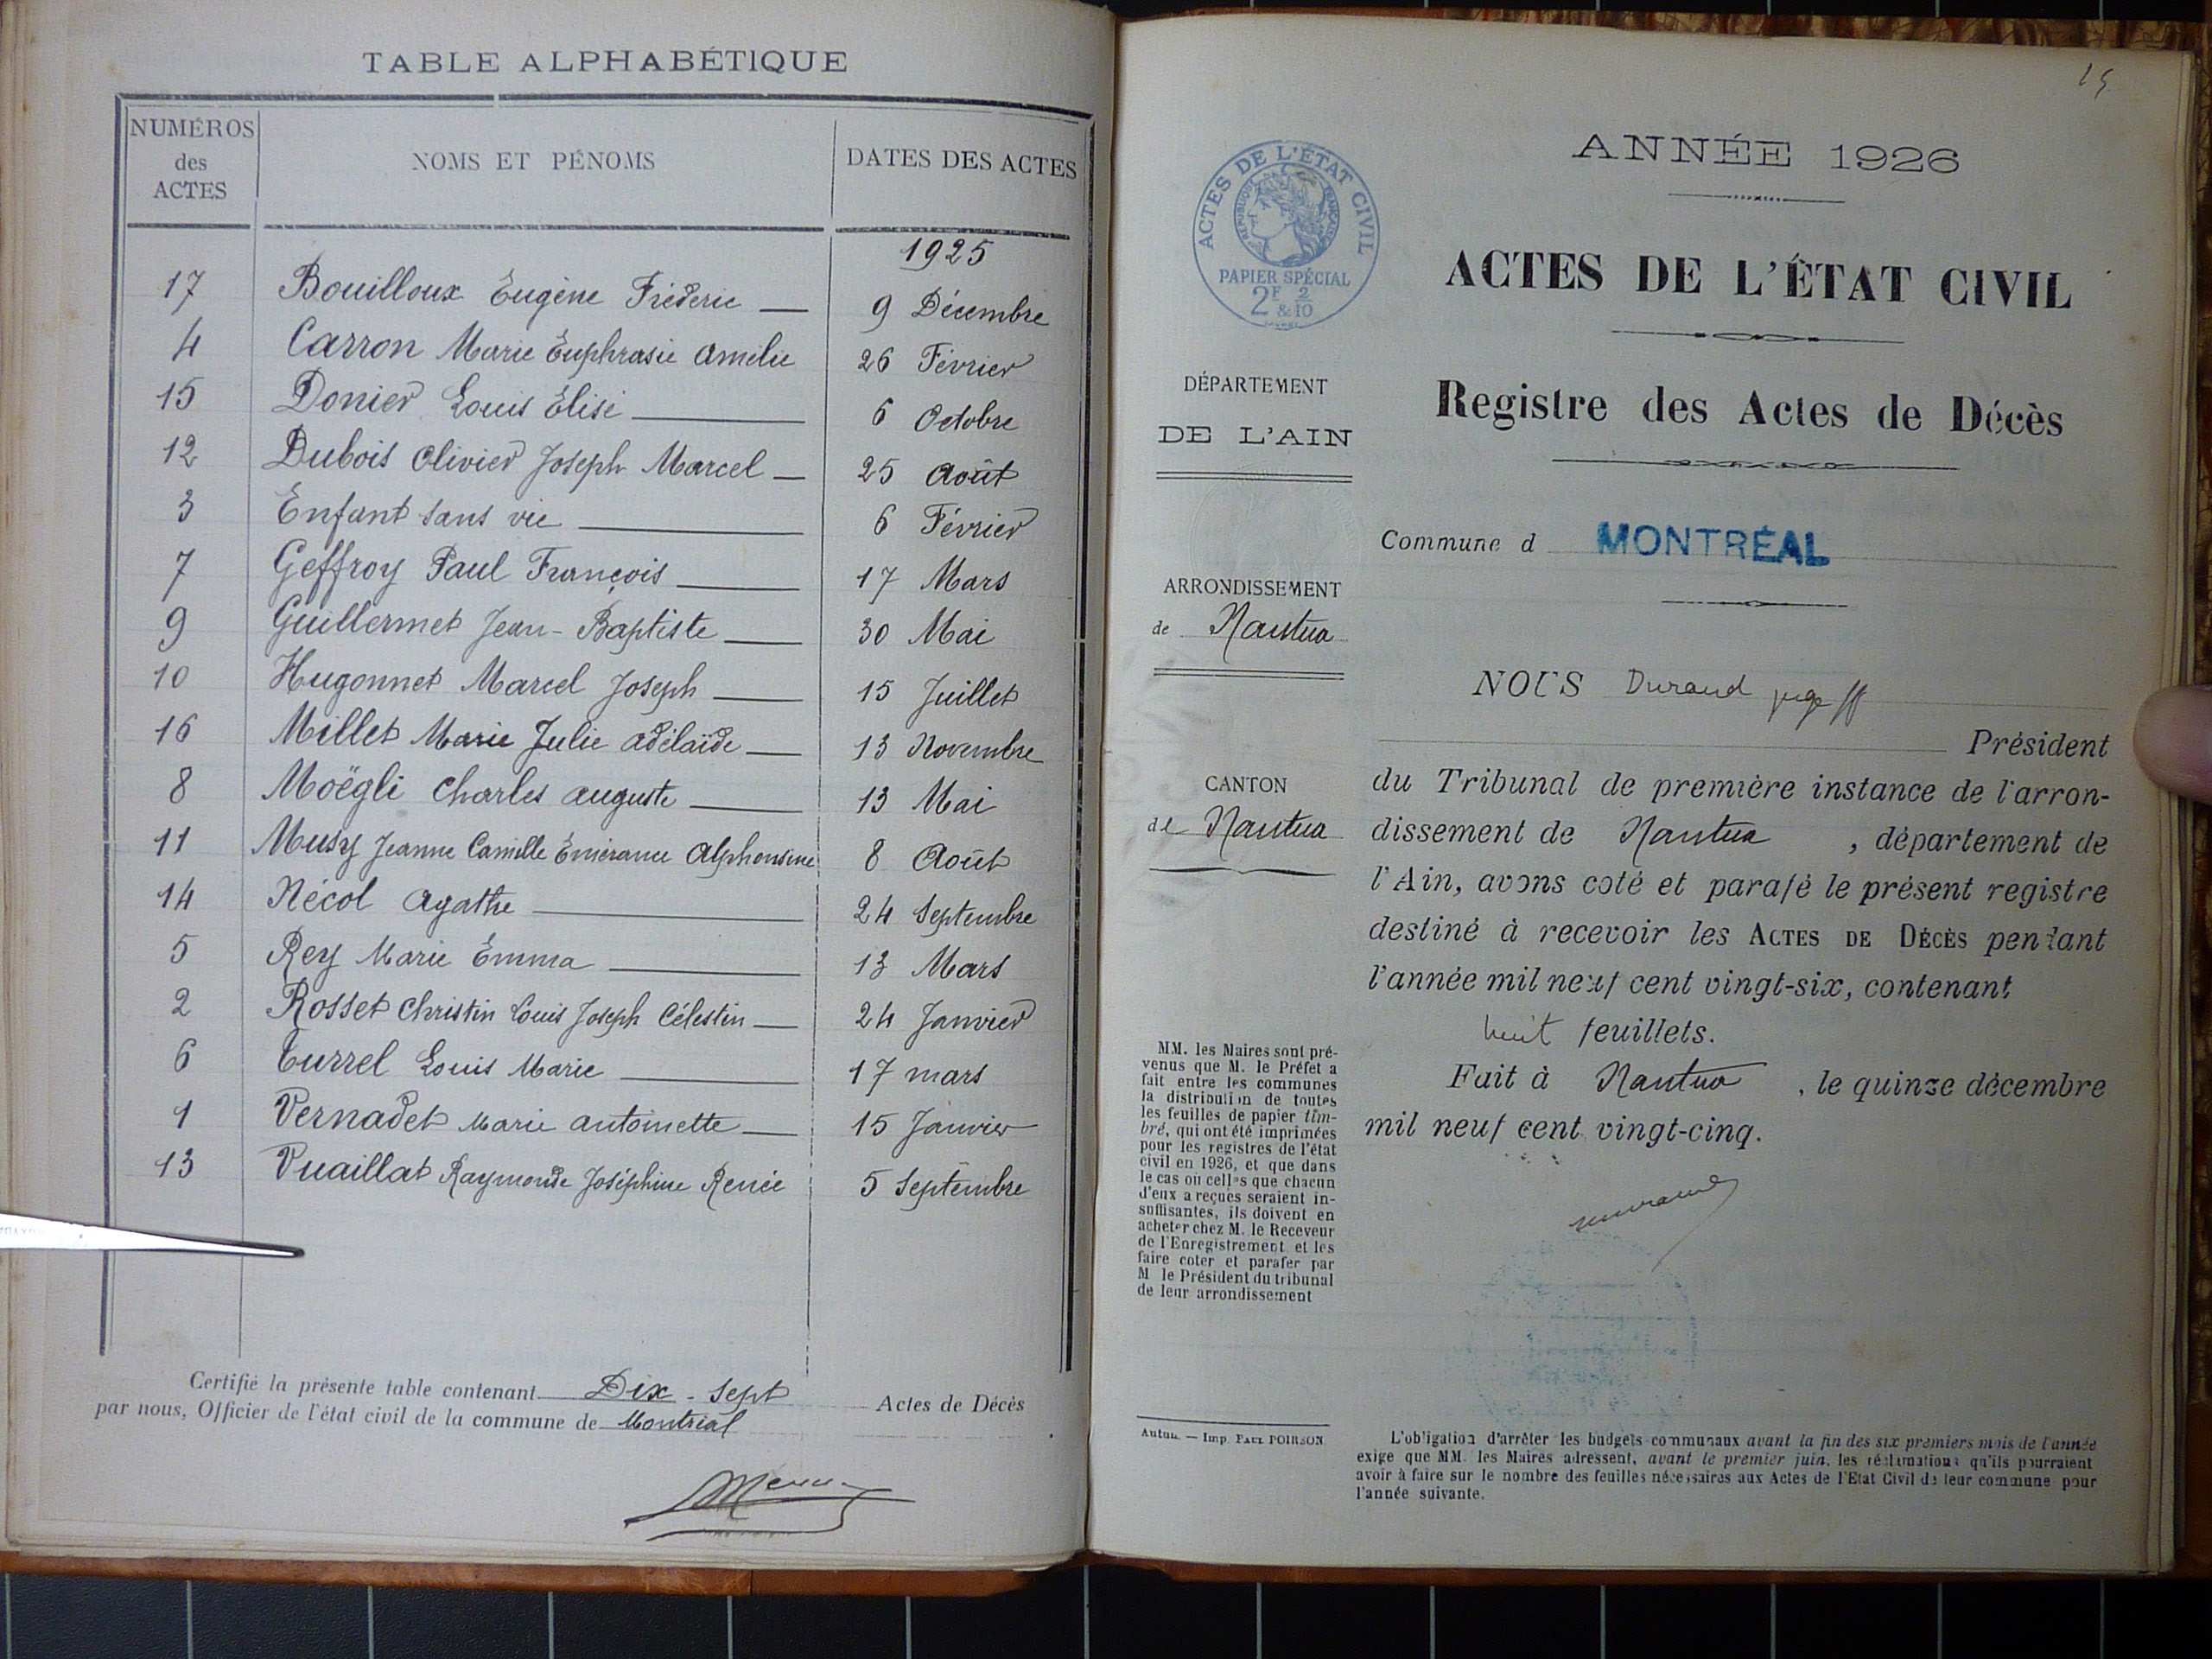 TABLE ALPHABÉTIQUE
NUMÉROS
des
ACTES
NOMS ET PÉNOMS
DATES DES ACTES
1925
17 Bouilloux Eugène Fréderic 9 Décembre
4 Carron Marie Euphrasie Amélie 26 Février
15 Donier Louis Élisé 6 Octobre
12 Dubois Olivier Joseph Marcel 25 Août
3 Enfant sans vie 6 Février
7 Geffroy Paul François 17 Mars
9 Guillermet Jean-Baptiste 30 Mai
10 Hugonnet Marcel Joseph 15 Juillet
16 Millet Marie Julie Adélaïde 13 Novembre
8 Moëgli Charles Auguste 13 Mai
11 Musy Jeanne Camille Emérance Alphonsine 8 Août
14 Nécol Agathe 24 Septembre
5 Rey Marie Emma 13 Mars
2 Rosset Christin Louis Joseph Célestin 24 Janvier
6 Turrel Louis Marie 17 mars
1 Vernadet Marie Antoinette 15 Janvier
13 Vuaillat Raymonde Joséphine Renée 5 Septembre
Certifié la présente table contenant Dix-sept Actes de Décès
par nous, Officier de l'état civil de la commune de Montréal
15
ANNÉE 1926
ACTES DE L'ÉTAT CIVIL
RÉPUBLIQUE FRANÇAISE
PAPIER SPÉCIAL
2F & 2/10
ACTES DE L'ÉTAT CIVIL
Registre des Actes de Décès
DÉPARTEMENT
DE L'AIN
Commune d MONTRÉAL
ARRONDISSEMENT
de Nantua
CANTON
de Nantua
NOUS Durand juge ff
Président
du Tribunal de première instance de l'arron-
dissement de Nantua, département de
l'Ain, avons coté et parafé le présent registre
destiné à recevoir les ACTES DE DÉCÈS pendant
l'année mil neuf cent vingt-six, contenant
huit feuillets.
Fait à Nantua, le quinze décembre
mil neuf cent vingt-cinq.
MM. les Maires sont pré-
venus que M. le Préfet a
fait entre les communes
la distribution de toutes
les feuilles de papier tim-
bré, qui ont été imprimées
pour les registres de l'état
civil en 1926, et que dans
le cas où celles que chacun
d'eux a reçues seraient in-
suffisantes, ils doivent en
acheter chez M. le Receveur
de l'Enregistrement et les
faire coter et parafer par
M le Président du tribunal
de leur arrondissement
Autun. — Imp. PAUL POIRSON
L'obligation d'arrêter les budgets communaux avant la fin des six premiers mois de l'année
exige que MM. les Maires adressent, avant le premier juin, les réclamations qu'ils pourraient
avoir à faire sur le nombre des feuilles nécessaires aux Actes de l'Etat Civil de leur commune pour
l'année suivante.